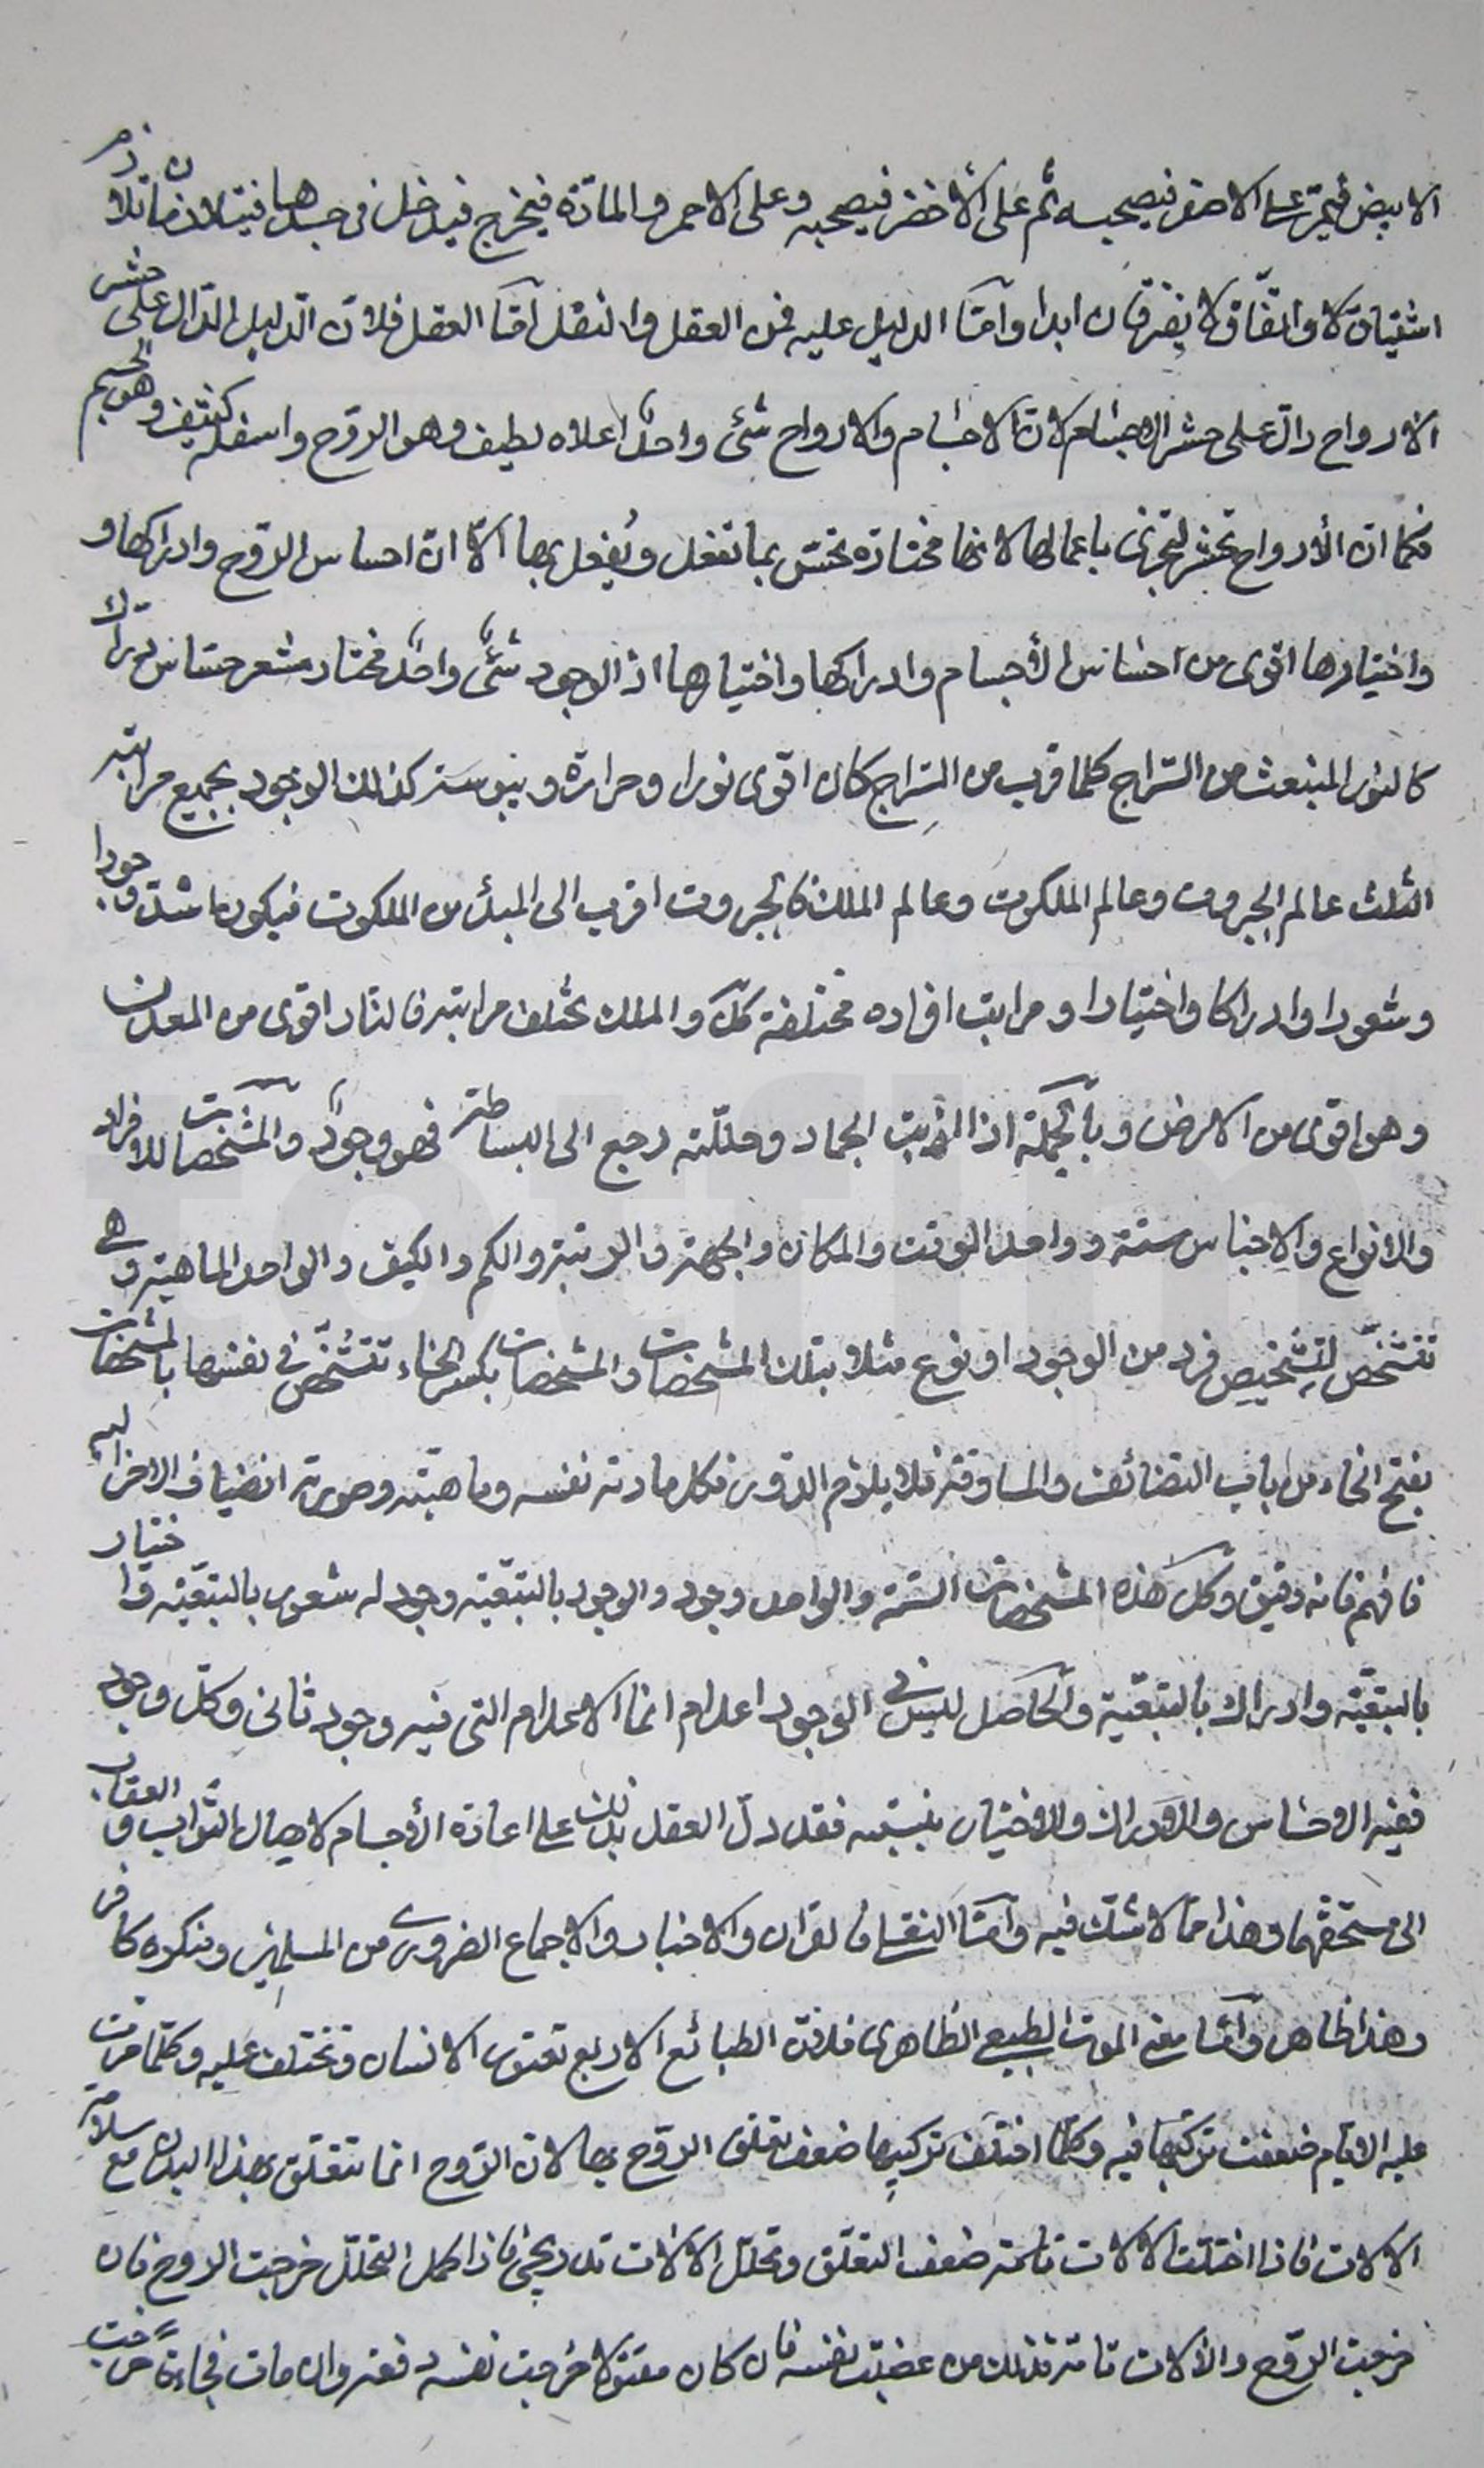 الابيض فيمر على الاصفر فيصحبه ثم على الأخضر فيصحبه وعلى الاحمر والمادة فيخرج فيدخل في جسدها فيتلازمان تلازم
اشتياق كا واتفاق لا يفترقان ابدا وآمّا الدليل عليه فمن العقل والنقل آمّا العقل فلانّ الدليل الدّال على حشر
الارواح دالّ على حشر الاجسام لانّ الاجسام والارواح شئ واحدٌ اعلاه لطيف وهو الروّح واسفله كثيف وهو الجسم
فكما انّ الأرواح تحشر لتجزى باعمالها لانها مختارة تحسّ بما تفعل ويُفعل بها الّا انّ احساس الروّح وادراكها و
واختيارها اقوى من احساس الأجسام وادراكها واختيارها اذ الوجود شئٌ واحدٌ مختار مشعر حسّاس درّاك
كالنور المنبعث من السّراج كلما قرب من السّراج كان اقوى نورا وحرارة ويبوسة كذلك الوجود بجميع مراتبه
الثلث عالم الجبروت وعالم الملكوت وعالم الملك فالجبروت اقرب الى المبدأ من الملكوت فيكون اشدّ وجودا
وشعورا وادراكا واختيارا ومراتب افراده مختلفة كلّ والملك تختلف مراتبه فالنار اقوى من المعدن
وهو اقوى من الارض وبآلجملة اذا اذيبت الجماد وحللّته رجع الى البساطة فهو وجودٌ والمشخّصات للافراد
والانواع والاجناس ستّة وواحد الوقت والمكان والجهة والرتبة والكم والكيف والواحد الماهية وهي
تتشخّص لِتشخيص فرد من الوجود او نوع مثلا بتلك المشخصات والمشخصات بكسر الخاء تتشخّص في نفسها بالمشخصات
بفتح الخاء من باب التضائف والمساوقة فلا يلزم الدّور فكل مادته نفسه وماهيّته وصورته انضياف الاخر اليه
فافهم فانه دقيق وكل هذه المشخصات الستّة والواحد وجود والوجود بالتبعّية وجود له شعور بالتبعّية واختيار
بالتبعيّة وادراك بالتبعّية والحاصل ليس في الوجود اعدام انما الاعدام التي فيه وجود ثانى وكلّ وجود
ففيه الاحساس والادراك والاختيار بنسبته فقد دلّ العقل بذلك على اعادة الأجسام لايصال الثّواب والعقاب
الى مستحقّهما وهذا ممّا لا شكّ فيه وآمّا النقل فالقران والاخبار والاجماع الضروري من المسلمين ومنكره كافر
وهذا ظاهر وآمّا معنى الموت الطبيعي الظاهرى فلانّ الطبائع الاربع تعتور الانسان وتختلف عليه وكلّما مرّت
عليه الايام ضعفت تركيبها فيه وكلّما اختلف تركيبها ضعف تعلق الروّح بها لانّ الرّوح انما تتعلّق بهذا البدن مع سلامة
الالات فاذا اختلّت الالات ضعف التعلّق وتحلّل الالات تدريجىّ فاذا كمل التحلّل خرجت الروح فان
خرجت الروّح والالات تامّة فذلك من غضبت نفسه فان كان مقتولا خرجت نفسه دفعة وان مات فجاءة خرجت